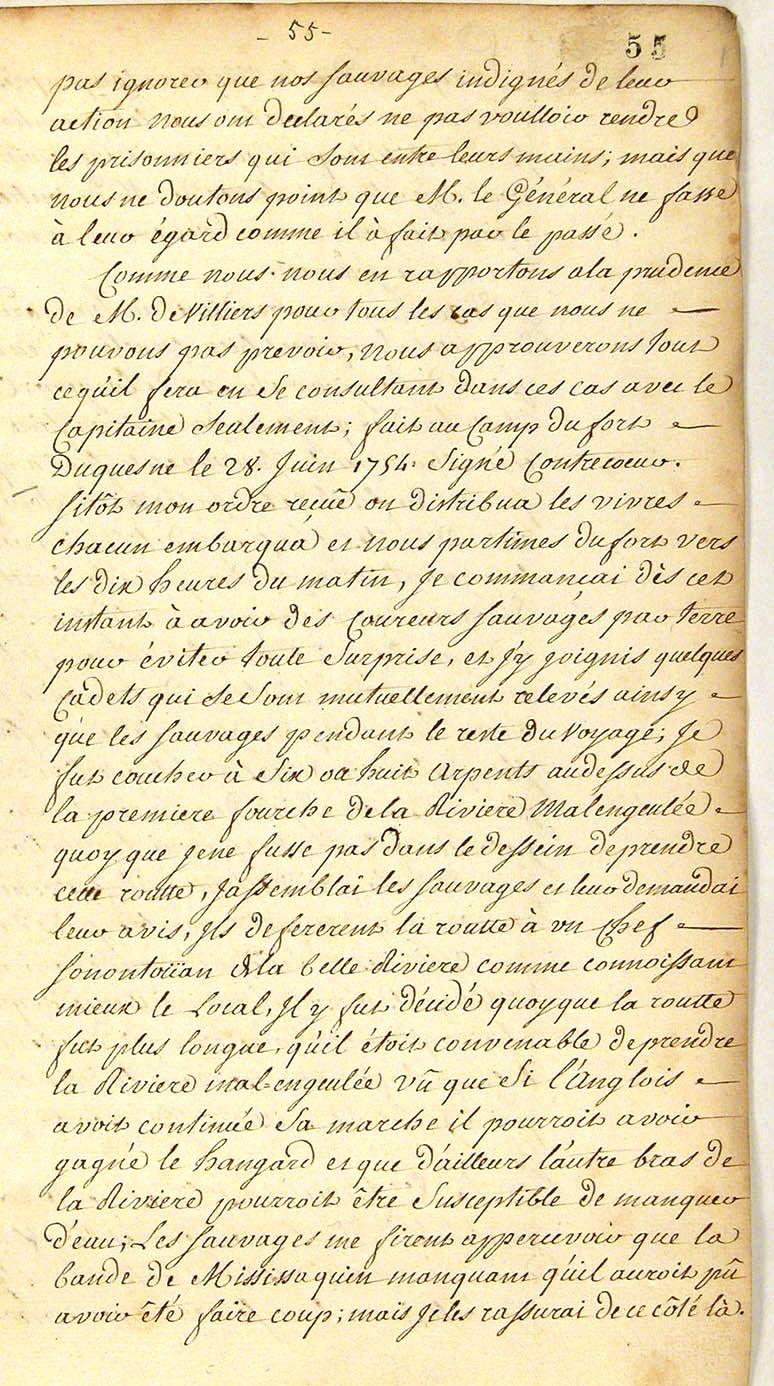 - 55 -
55
pas ignorer que nos sauvages indignés de leur
action nous ont declarés ne pas voulloir rendre
les prisonniers qui sont entre leurs mains; mais que
nous ne doutons point que M. le Général ne fasse
à leur égard comme il à fait par le passé.
Comme nous nous en rapportons a la prudence
de M. de Villiers pour tous les cas que nous ne
pouvons pas prevoir, nous approuverons tout
ce qu'il fera en se consultant dans ces cas avec le
Capitaine seulement; fait au Camp du fort
Duquesne le 28. Juin 1754. Signé Contrecoeur.
sitôt mon ordre reçûe on distribua les vivres
chacun embarqua et nous partimes du fort vers
les dix heures du matin, Je commançai dès cet
instant à avoir des Coureurs sauvages par terre
pour éviter toute Surprise, et j'y joignis quelques
Cadets qui se sont mutuellement relevés ainsy
que les sauvages pendant le reste du voyage; Je
fut coucher à Six ou huit Arpents au dessus de
la premiere fourche de la Riviere Malengeulée
quoy que je ne fusse pas dans le dessein de prendre
cette routte, J'assemblai les sauvages et leur demandai
leur avis, Ils defererent la routte à un Chef
sonontoüan de la belle Riviere comme connoissant
mieux le Local, Il y fut décidé quoyque la routte
fut plus longue, qu'il étoit convenable de prendre
la Riviere mal-engeulée vû que Si l'Anglois
avoit continuée Sa marche il pourroit avoir
gagné le hangard et que d'ailleurs l'autre bras de
la Riviere pourroit être Susceptible de manquer
d'eau; Les sauvages me firent appercevoir que la
bande de Mississaquin manquant qu'il auroit pû
avoir été faire coup; mais Je les rassurai de ce côté là.